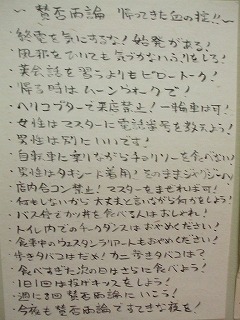 〜 賛否両論 帰ってきた血の掟!! 〜
・終電を気にするな!始発がある!
・風邪をひいても気づかないふりをしろ!
・英会話を習うよりもピロートーク!
・帰る時はムーンウォークで!
・ヘリコプターで来店禁止!一輪車は可!
・女性はマスターに電話番号を教えよう!
・男性は別にいいです!
・自転車に乗りながらチャリソーを食べない!
・男性はタキシード着用!そのままジャグジーへ
・店内合コン禁止!マスターをまぜれば可!
・何もしないから大丈夫と言いながら何かをしよう!
・バス停でカツ丼を食べる人はおしゃれ!
・トイレ内でのチークダンスはおやめください!
・食事中のウエスタンラリアートもおやめください!
・歩きタバコはだめ!カニ歩きタバコは?
・食べすぎた次の日はさらに食べよう!
・1日1回は投げキッスをしよう!
・週に3回賛否両論にいこう!
・今夜も賛否両論ですてきな夜を!